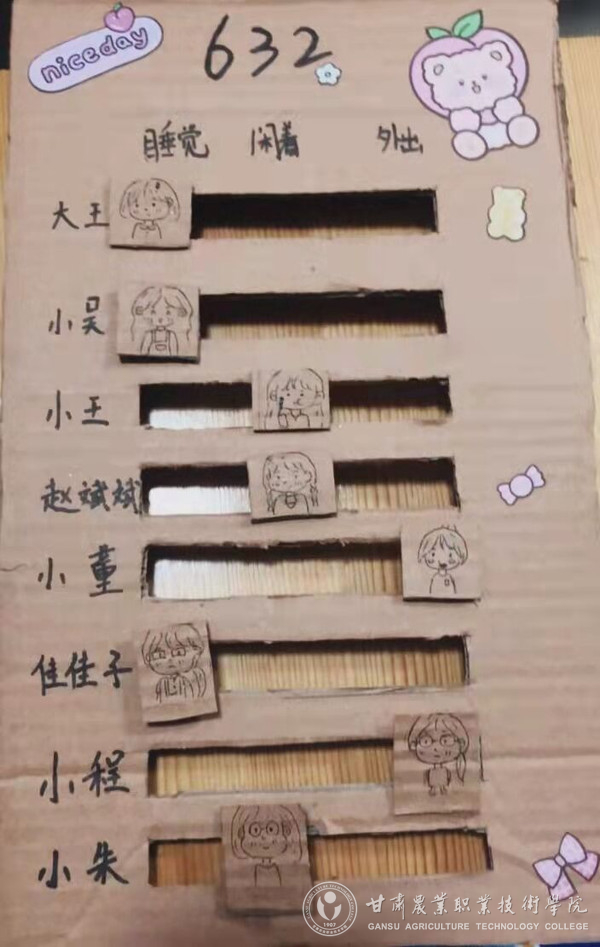 niceday
632
睡觉 闲着 外出
大王
小吴
小王
赵斌斌
小董
佳佳子
小程
小朱
甘肃农业职业技术学院
GANSU AGRICULTURE TECHNOLOGY COLLEGE